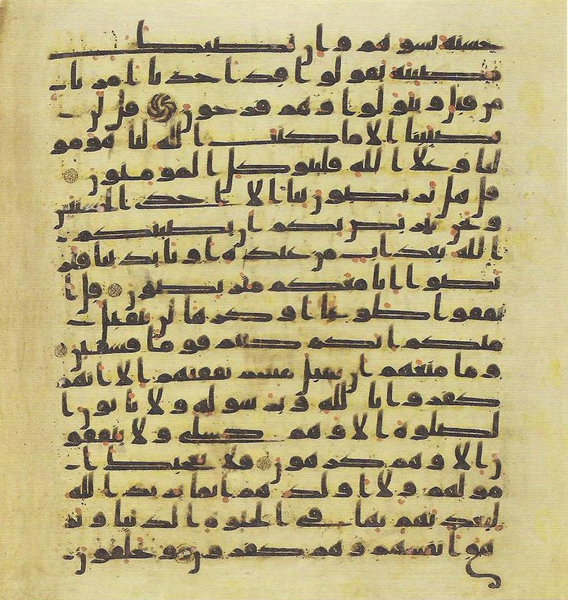 حسنة تسوهم وان تصبك
مصيبة يقولوا قد اخذنا امرنا
من قبل ويتولوا وهم فرحون قل لن
يصيبنا الا ما كتب الله لنا هو مو
لنا وعلى الله فليتوكل المومنون
قل هل تربصون بنا الا احدى الحسنيين
ونحن نتربص بكم ان يصيبكم
الله بعذاب من عنده او بايدينا فتر
بصوا انا معكم متربصون قل ا
نفقوا طوعا او كرها لن يتقبل
منكم انكم كنتم قوما فسقين
وما منعهم ان تقبل منهم نفقتهم الا انهم
كفروا بالله وبرسوله ولا ياتون ا
لصلوة الا وهم كسلى ولا ينفقو
ن الا وهم كرهون فلا تعجبك ا
مولهم ولا اولدهم انما يريد الله
ليعذبهم بها في الحيوة الدنيا وتز
هق انفسهم وهم كفرون ويحلفون